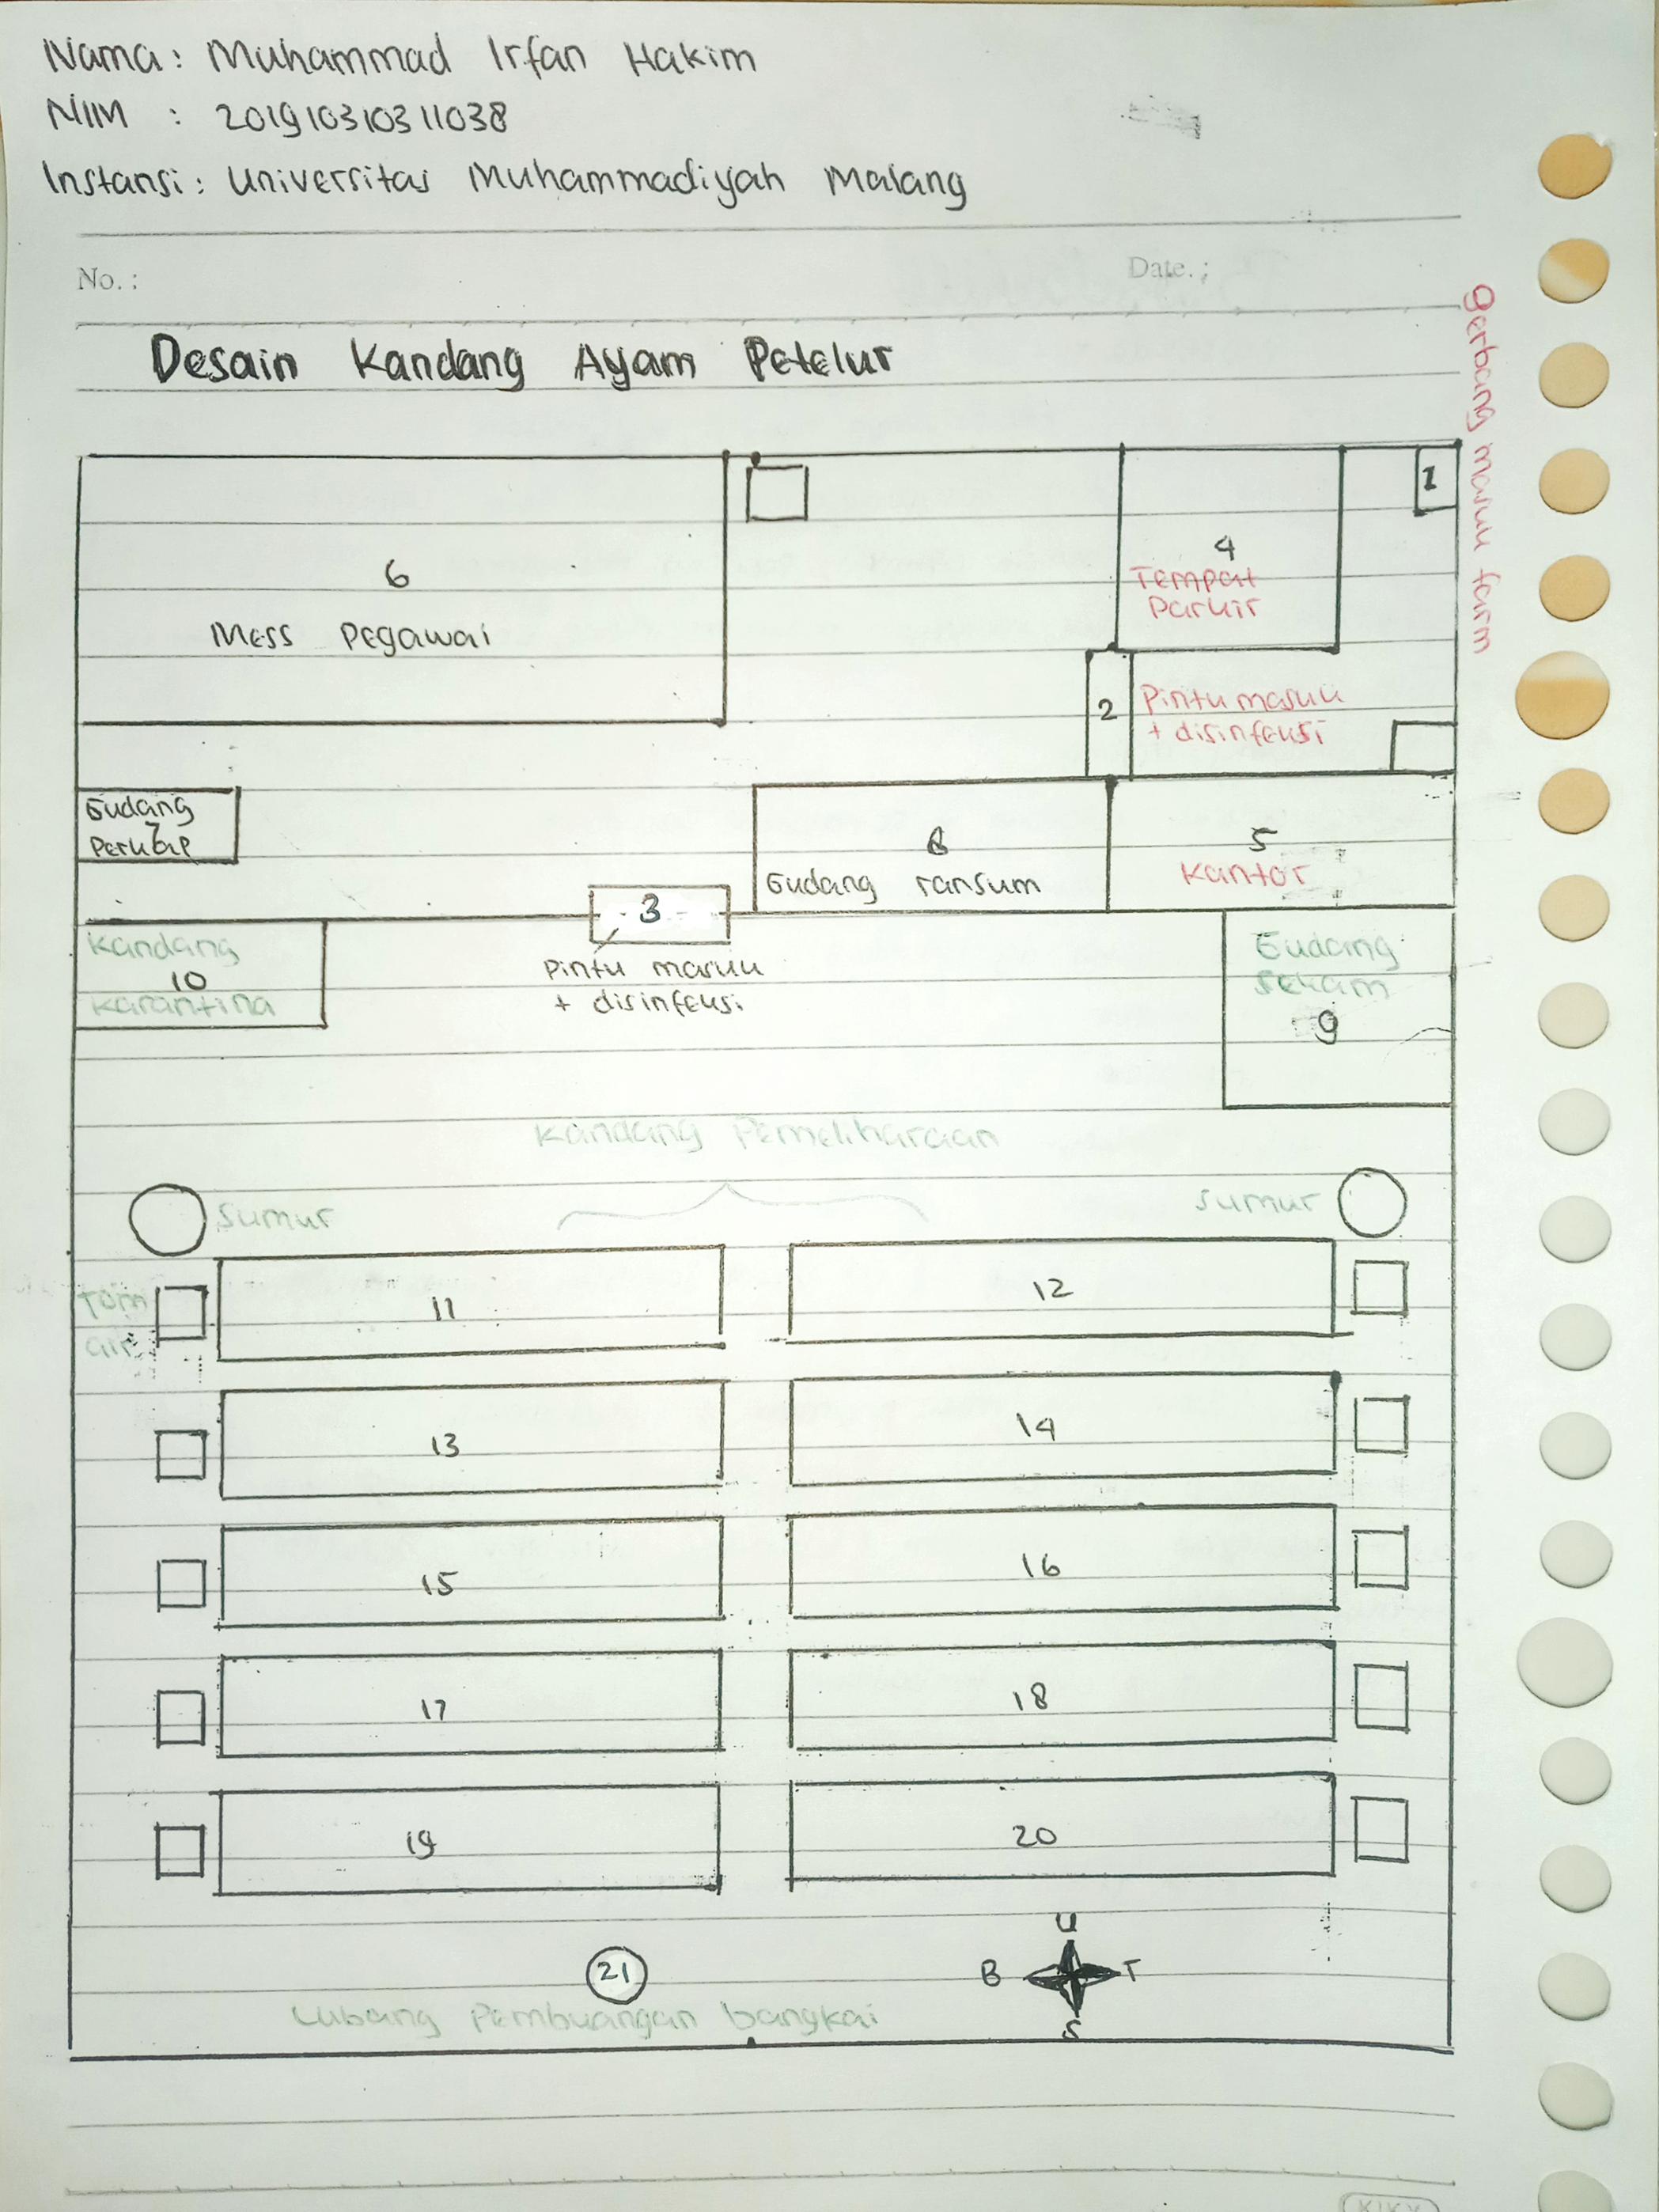 Nama: Muhammad Irfan Hakim
NIM : 201910310311038
Instansi: Universitas Muhammadiyah Malang
No. :
Date. :
Desain Kandang Ayam Petelur
gerbang masuk farm
1
6
Mess Pegawai
4
Tempat
Parkir
2
Pintu masuk
+ disinfeksi
Gudang
7
8
Gudang ransum
5
Kantor
3
Pintu masuk
+ disinfeksi
Kandang
10
Karantina
Gudang
Sekam
9
Kandang Pemeliharaan
Sumur
Sumur
air
11
12
13
14
15
16
17
18
19
20
21
Lubang Pembuangan bangkai
U
B
T
S
KIKY